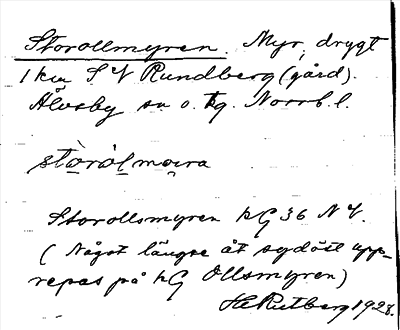 Storollmyren. Myr, drygt
1 km S V Rundberg (gård).
Älvsby sn o. tg. Norrb. l.
Storollsmyren kG 36 N V.
(Något längre åt sydöst upp-
repas på kG Ollsmyren)
H Rutberg 1928.